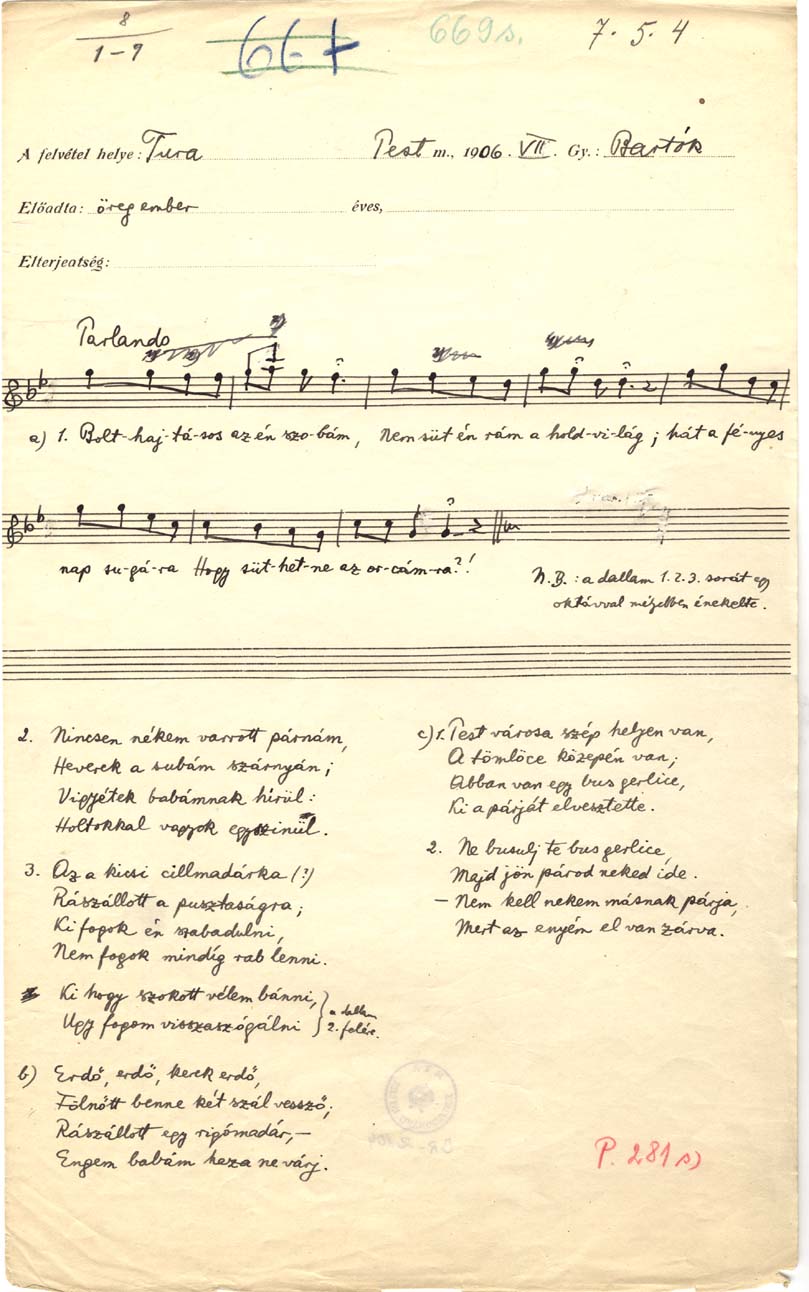 8
1-9
667
669 s.
7. 5. 4
A felvétel helye: Tura Pest m., 1906. VII. Gy.: Bartók
Előadta: öreg ember éves,
Elterjeatség:
Parlando
a) 1. Bolt-haj-tá-sos az én szo-bám, Nem süt én rám a hold-vi-lág; hát a fé-nyes
nap su-gá-ra Hogy süt-het-ne az or-cám-ra?!
N.B.: a dallam 1. 2. 3. sorát egy
oktávval mélyebben énekelte.
2. Nincsen nékem varrott párnám,
Heverek a subám szárnyán;
Vigyétek babámnak hírül:
Holtokkal vagyok egyszinül.
3. Az a kicsi cillmadárka (?)
Rászállott a pusztaságra;
Ki fogok én szabadulni,
Nem fogok mindíg rab lenni.
Ki hogy szokott vélem bánni,
Ugy fogom visszaszógálni
a dallam
2. felére.
b) Erdő, erdő, kerek erdő,
Fölnőtt benne két szál vessző;
Rászállott egy rigómadár,—
Engem babám haza ne várj.
c) 1. Pest városa szép helyen van,
A tömlöce közepén van;
Abban van egy bus gerlice,
Ki a párját elvesztette.
2. Ne busulj te bus gerlice,
Majd jön párod neked ide.
— Nem kell nekem másnak párja,
Mert az enyém el van zárva.
P. 281 s)